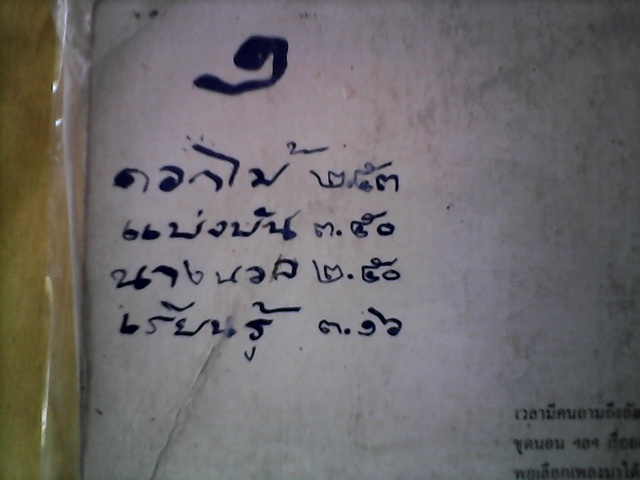 ๑
ดอกไม้ ๒.๕๓
แบ่งปัน ๓.๕๐
นางนวล ๒.๕๐
เรียนรู้ ๓.๑๖
เวลามีคนถามถึงอัล
ชุดนอน ฯลฯ เรื่อย
พอเลือกเพลงมาได้